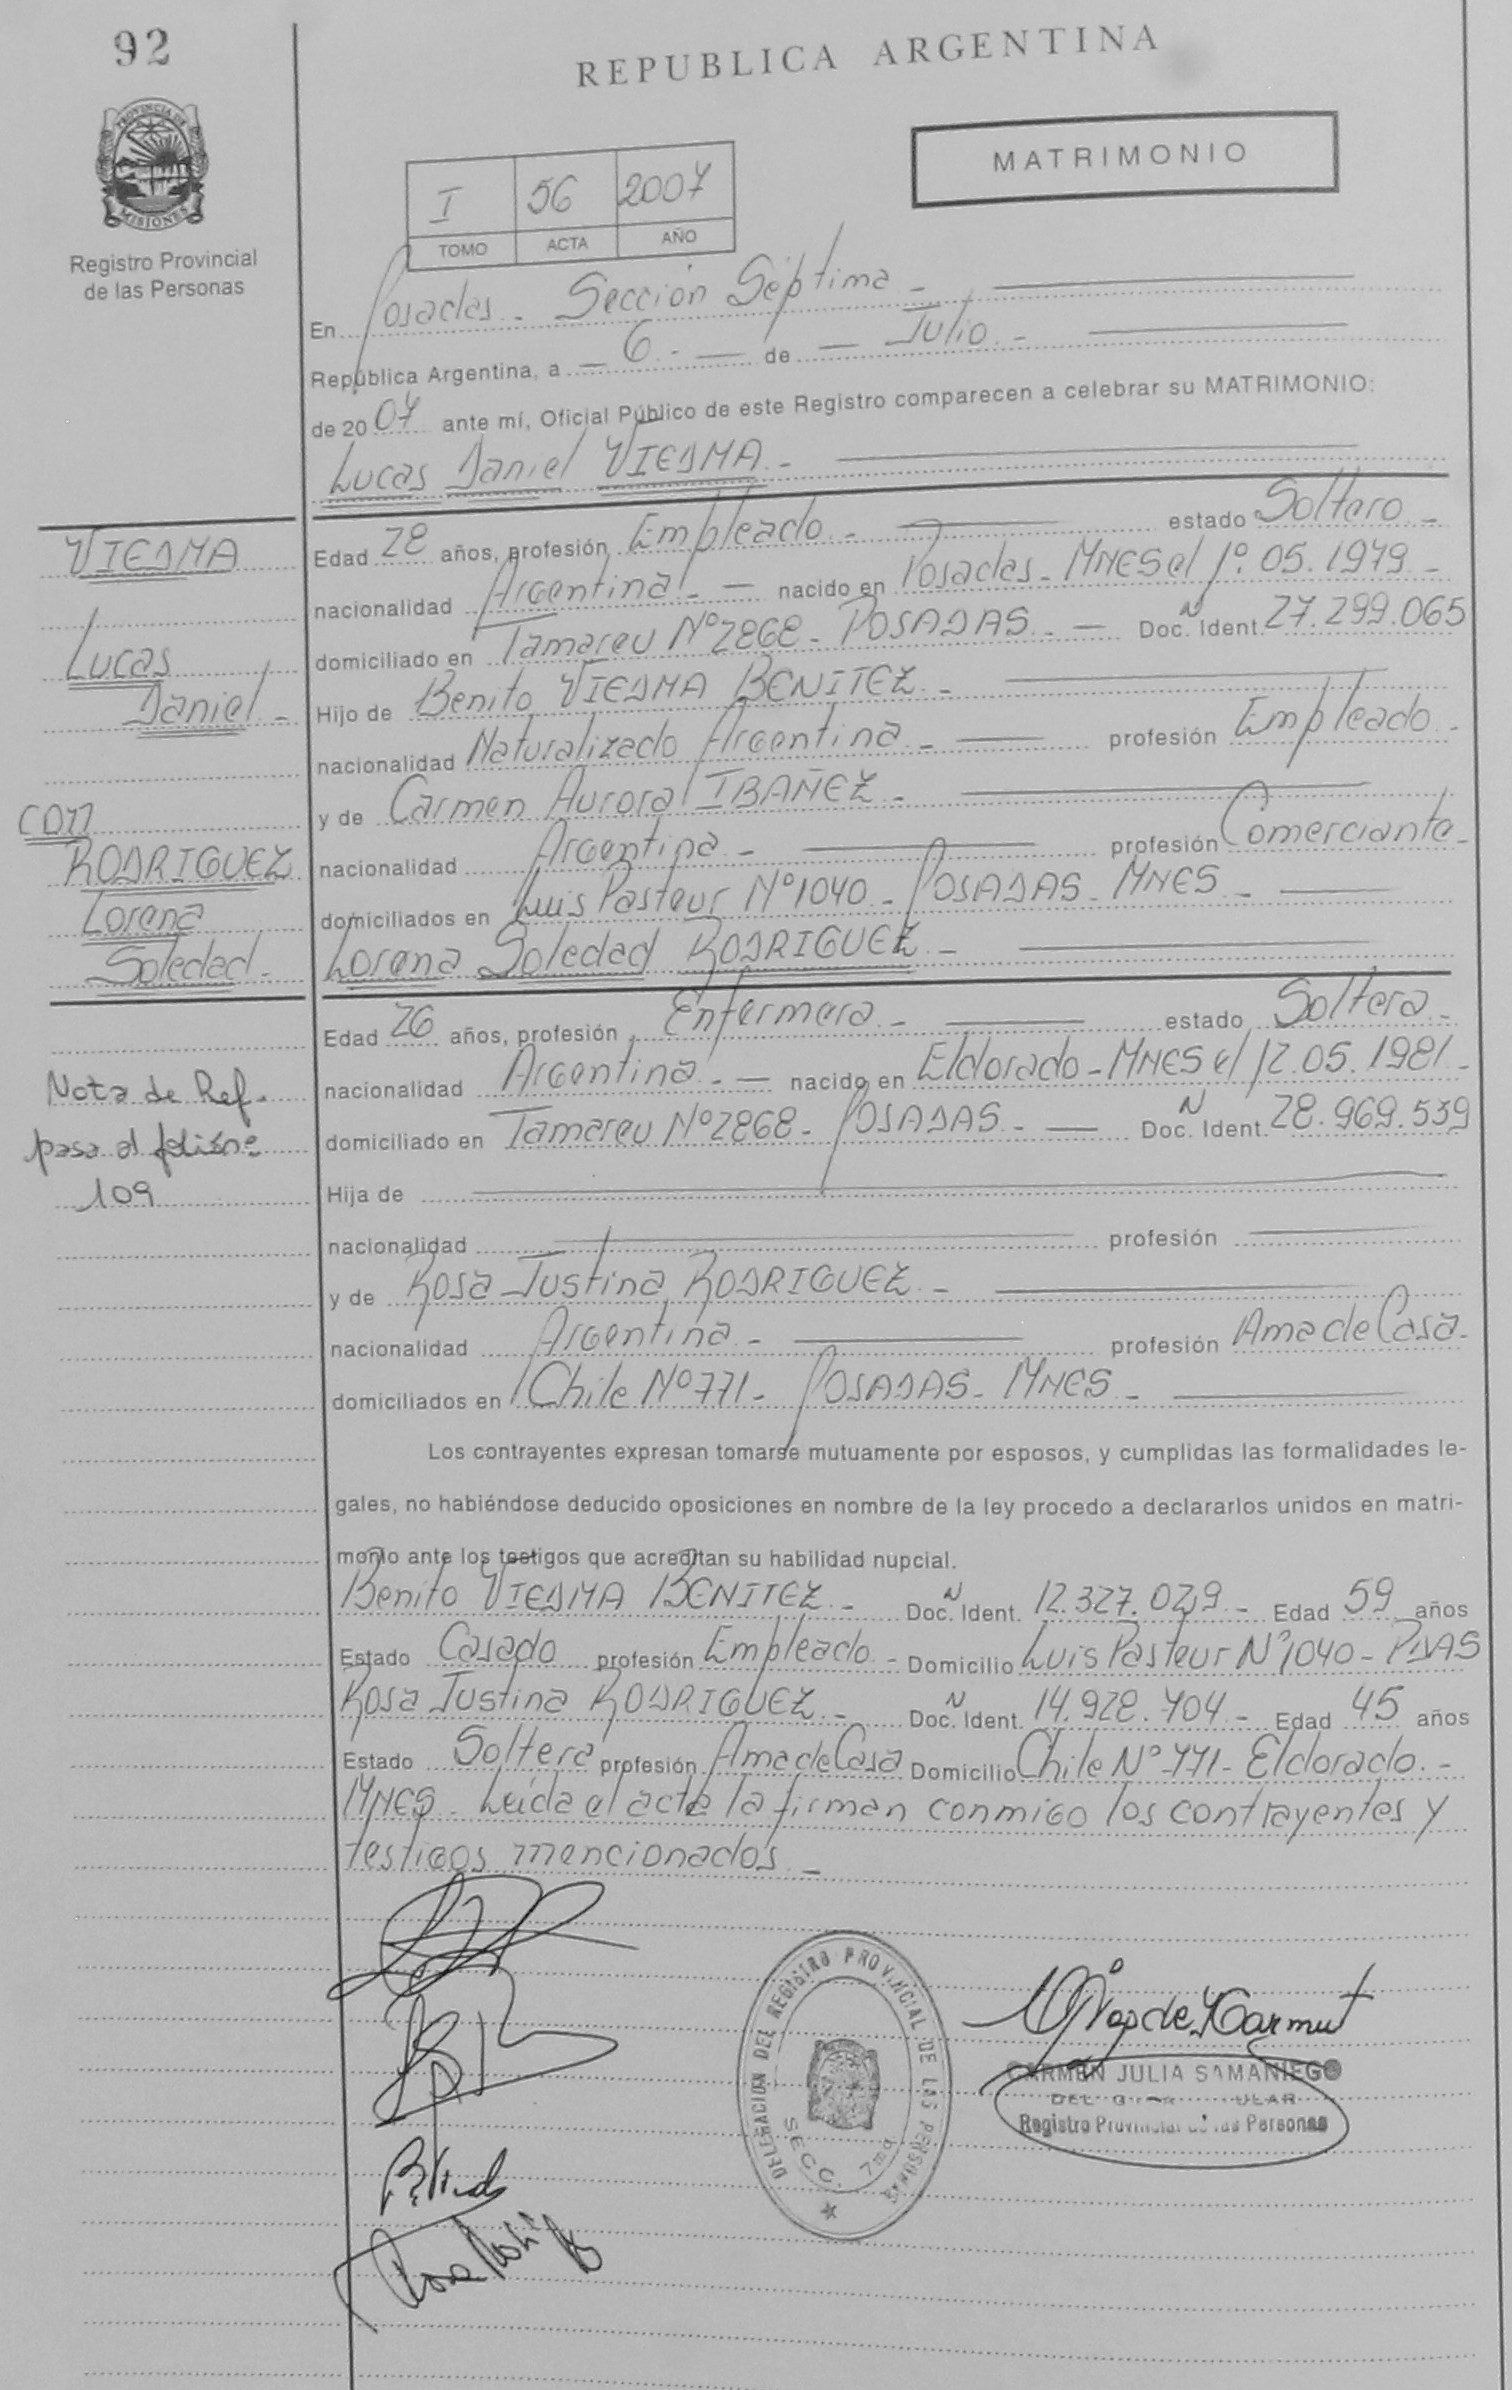 92
REPUBLICA ARGENTINA
MATRIMONIO
PROVINCIA DE
MISIONES
Registro Provincial
de las Personas
I 56 2007
TOMO ACTA AÑO
En Posadas - Sección Séptima -
República Argentina, a - 6 - de - Julio -
de 2007 ante mí, Oficial Público de este Registro comparecen a celebrar su MATRIMONIO:
Lucas Daniel VIEDMA -
VIEDMA
Lucas
Daniel -
con
RODRIGUEZ
Lorena
Soledad -
Edad 28 años, profesión Empleado - estado Soltero -
nacionalidad Argentina - nacido en Posadas - MNES el 1º.05.1979 -
domiciliado en Tamareu Nº2868 - POSADAS - Doc. N Ident. 27.299.065
Hijo de Benito VIEDMA BENITEZ -
nacionalidad Naturalizado Argentina - profesión Empleado -
y de Carmen Aurora IBAÑEZ -
nacionalidad Argentina - profesión Comerciante -
domiciliados en Luis Pasteur Nº1040 - POSADAS - MNES -
Lorena Soledad RODRIGUEZ -
Edad 26 años, profesión Enfermera - estado Soltera -
nacionalidad Argentina - nacido en Eldorado - MNES el 12.05.1981 -
domiciliado en Tamareu Nº2868 - POSADAS - Doc. N Ident. 28.969.539
Hija de
nacionalidad profesión
y de Rosa Justina RODRIGUEZ -
nacionalidad Argentina - profesión Ama de Casa -
domiciliados en Chile Nº771 - POSADAS - MNES -
Nota de Ref.
pasa al folio nº
109
Los contrayentes expresan tomarse mutuamente por esposos, y cumplidas las formalidades le-
gales, no habiéndose deducido oposiciones en nombre de la ley procedo a declararlos unidos en matri-
monio ante los testigos que acreditan su habilidad nupcial.
Benito VIEDMA BENITEZ - Doc. N Ident. 12.327.029 - Edad 59 años
Estado Casado profesión Empleado - Domicilio Luis Pasteur Nº1040 - PDAS
Rosa Justina RODRIGUEZ - Doc. N Ident. 14.928.704 - Edad 45 años
Estado Soltera profesión Ama de Casa Domicilio Chile Nº 771 - Eldorado -
MNES - Leída el acta la firman conmigo los contrayentes y
testigos mencionados -
DELEGACION DEL REGISTRO PROVINCIAL DE LAS PERSONAS
SECC. 7ma
CARMEN JULIA SAMANIEGO
Registro Provincial de las Personas